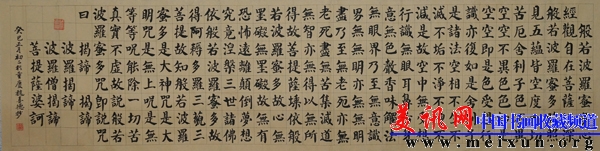 般若波羅蜜多心
經觀自在菩薩行
深般若波羅蜜多時照
見五蘊皆空度一切
苦厄舍利子色不異
空空不異色色即是
空空即是色受想行識
亦復如是舍利子
是諸法空相不生不
滅不垢不淨不增不
減是故空中無色無受想
行識無眼耳鼻舌身
意無色聲香味觸法
無眼界乃至無意識
界無無明亦無無明
盡乃至無老死亦無
老死盡無苦集滅道
無智亦無得以無所
得故菩提薩埵依般若
波羅蜜多故心無罣
礙無罣礙故無有
恐怖遠離顛倒夢想
究竟涅槃三世諸佛
依般若波羅蜜多故
得阿耨多羅三藐三
菩提故知般若波羅
蜜多是大神咒是大
明咒是無上咒是無
等等咒能除一切苦
真實不虛故說般若
波羅蜜多咒即說咒
曰
揭諦 揭諦
波羅揭諦
波羅僧揭諦
菩提薩婆訶
癸巳三月初
美讯网 中国书画收藏频道
www.meixun.org